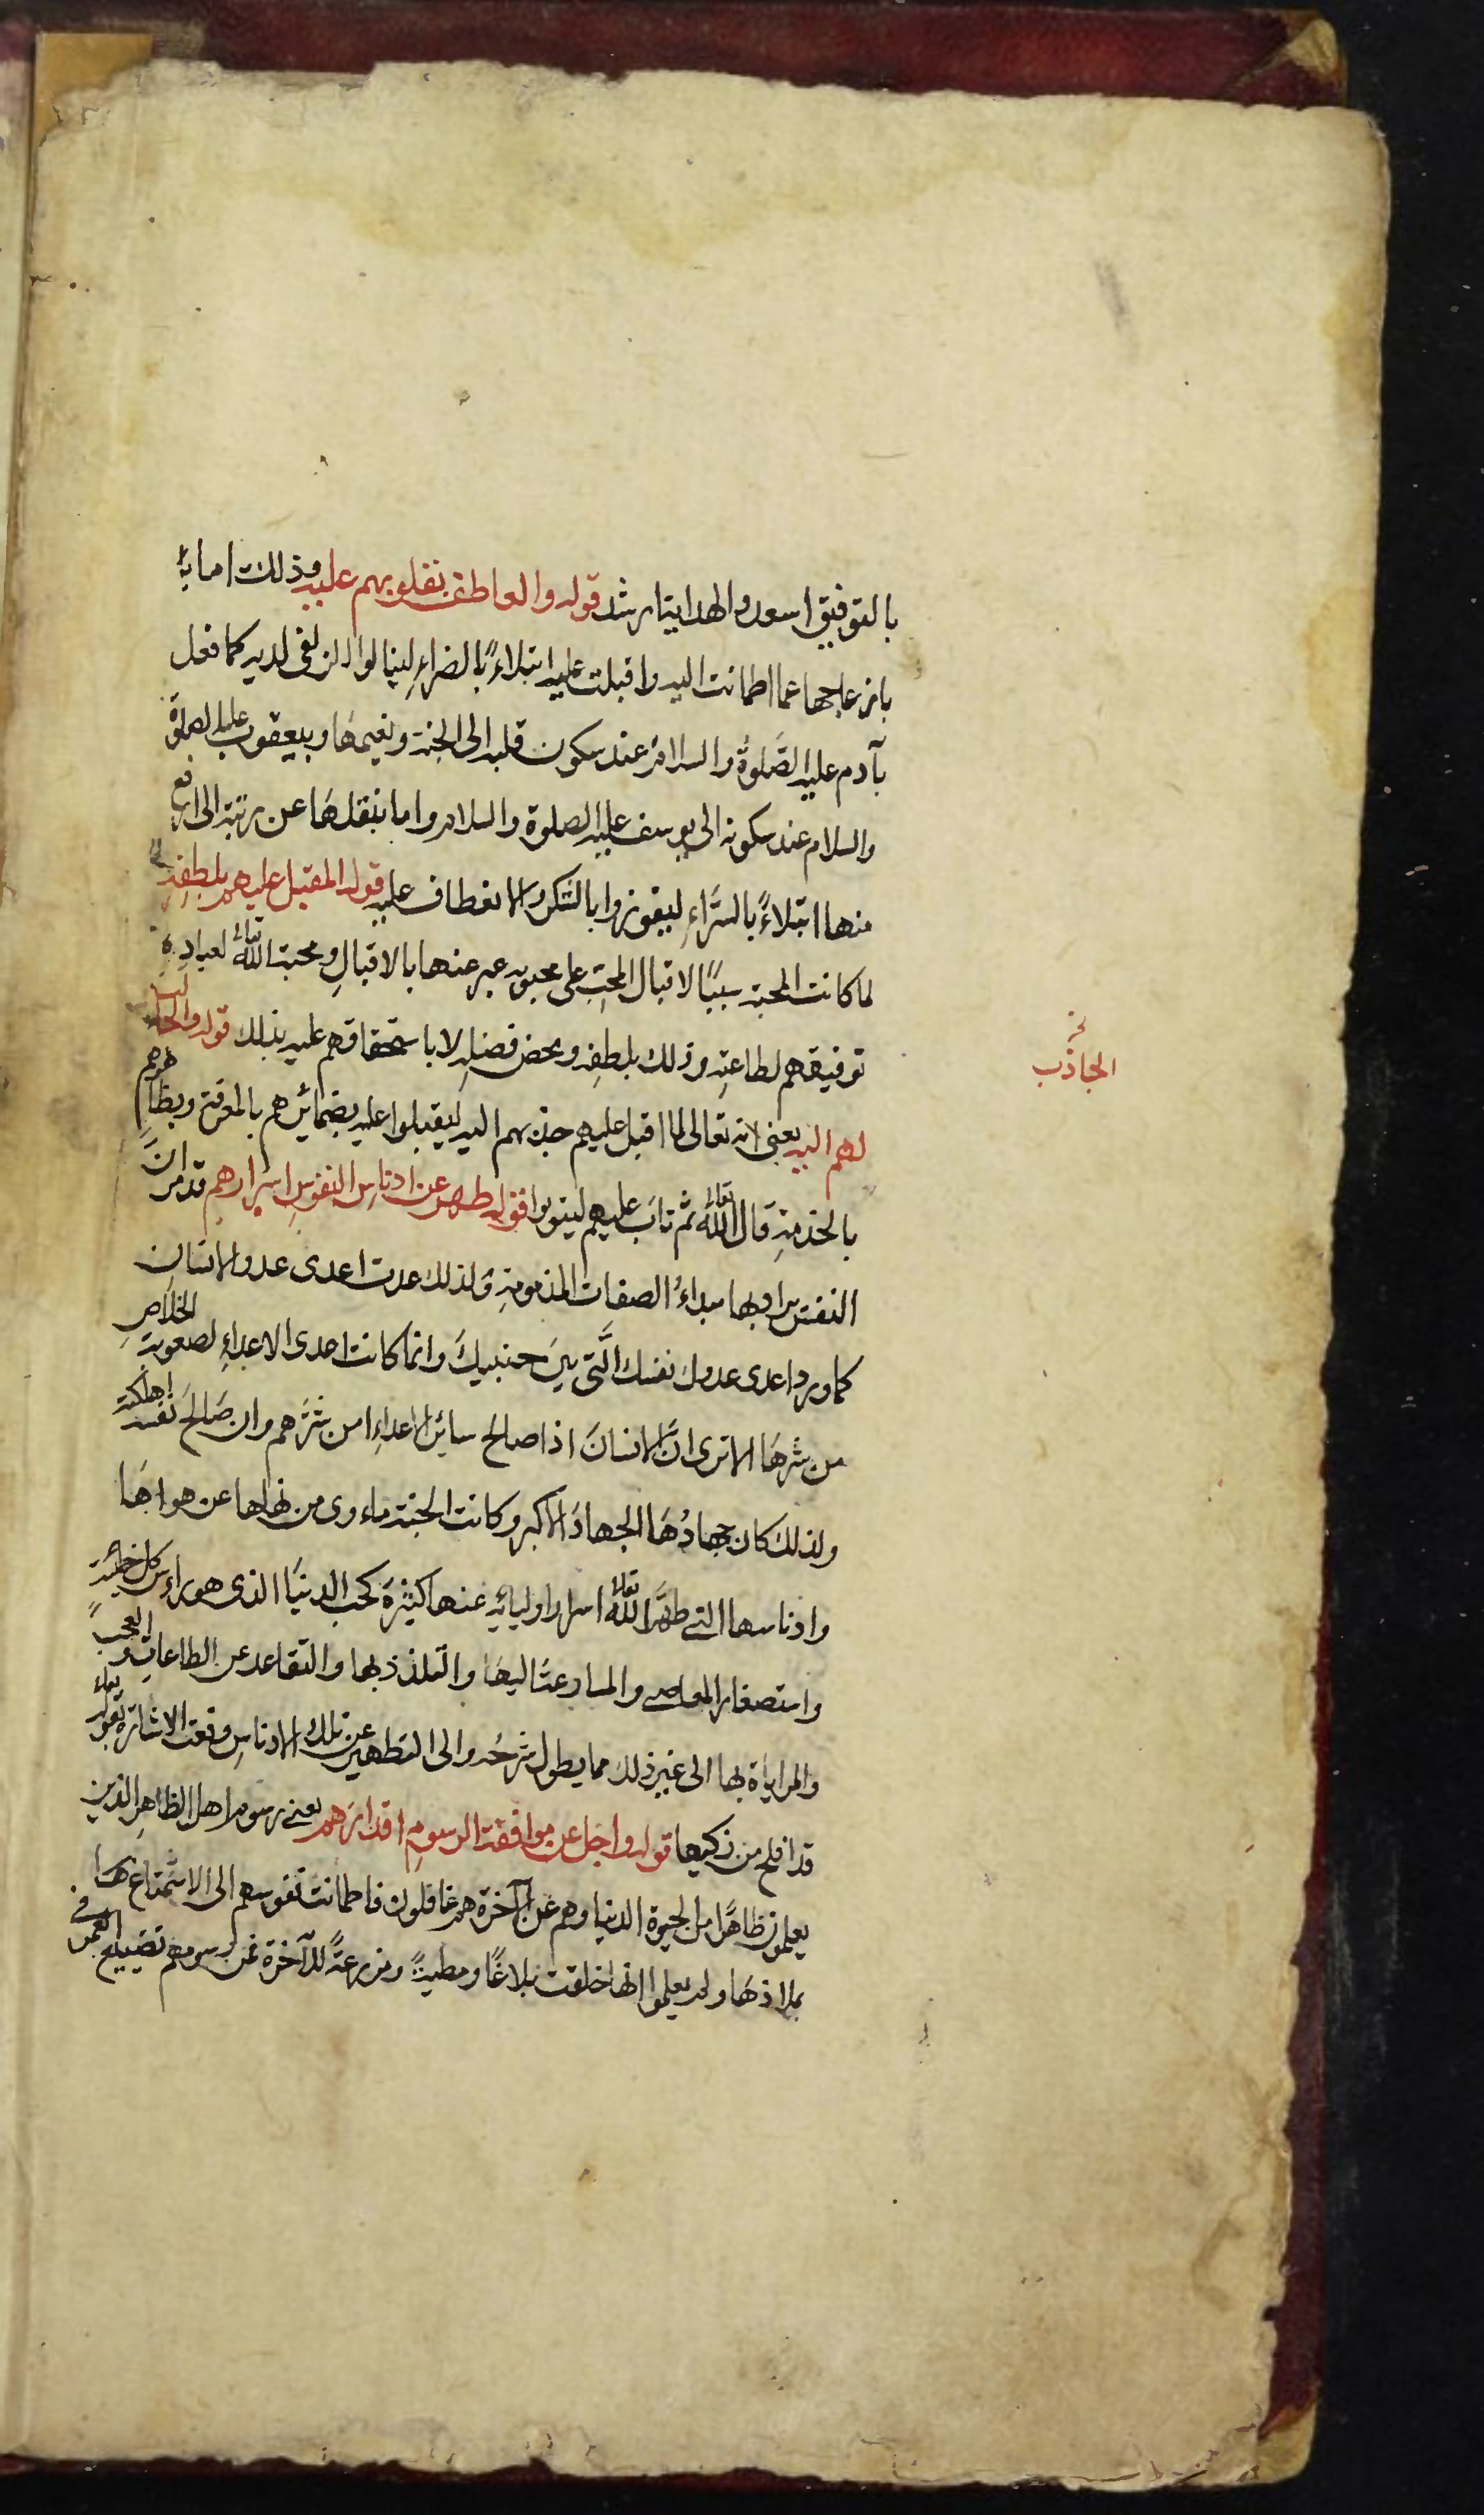 بالتوفيق اسعد والهداية ارشد قوله والعاطف بقلوبهم عليه وذلك اما
بازعاجها عما اطمانت اليه واقبلت عليه ابتلاءً بالضراءِ لينالوا الزلفى لديه كما فعل
بآدم عليه الصَّلوةُ والسلامُ عند سكون قلبه الى الجنة ونعيمهَا وبيعقوب عليه الصلوة
والسلام عند سكونه الى يوسف عليه الصلوة والسلام واما بنقلهَا عن رتبة الى ارفع
منها ابتلاءً بالسَّراءِ ليفوزوا بالشكر والانعطاف عليه قوله المقبل عليهم بلطفِه
لما كانت المحبة سببًا لاقبال المحبِّ على محبوبه عبر عنها بالاقبالِ ومحبة اللهُ تعالى لعبادِه
توفيقهم لطاعتِه وذلك بلطفِه ومحض فضلِه لا باستحقاقهم عليه بذلك قوله والجالب
الجاذب
لهم اليه يعنى انه تعالى لما اقبل عليهم جذبهم اليه ليقبلوا عليه بضمائرهم بالمعرفة وبظاهرهم
بالخدمةِ قال اللهُ تعالى ثم تابَ عليهم ليتوبوا قوله طهر عن ادناسِ النفوسِ اسرارهم قد مر انَّ
النفس يراد بها مبداءُ الصفات المذمومةِ ولذلك عدت اعدى عدو الانسان
كما ورد اعدى عدوك نفسك الَّتى بينَ جنبيكَ وانما كانت اعدى الاعداءِ لصعوبةِ الخلاصِ
من شرهَا الا ترى انَّ الانسانَ اذا صالح سائر الاعداءِ امن شرَّهم وان صَالحَ نفسه اهلكته
ولذلكَ كان جهادُهَا الجهادَ الاكبر وكانت الجنة ماءوى من نهاها عن هواهَا
وادناسها التى طهَّر اللهُ تعالى اسرار اوليائِه عنها كثيرَة كحب الدنيَا الذى هو راءس كل خطيئة
واستصغار المعاصى والمسارعة اليهَا والتلذذ بها والتقاعد عن الطاعاتِ والعجبِ
والمراياة بها الى غير ذلك مما يطول شرحُه والى التطهير عن تلك الادناسِ وقعت الاشارة بقوله تعالى
قد افلح من زكيها قوله واجل عن موافقة الرسومِ اقدارَهم يعنى رسوم اهل الظاهرِ الذين
يعلمون ظاهرًا من الحيوة الدنيا وهم عن الآخرة هم غافلون فاطمانت نفوسهم الى الاستمتاع بهَا
بملاذهَا ولم يعلموا انها خلقت بلاغًا ومطيةً ومزرعةً للآخرة فمن رسومهم تضييع العمر فى